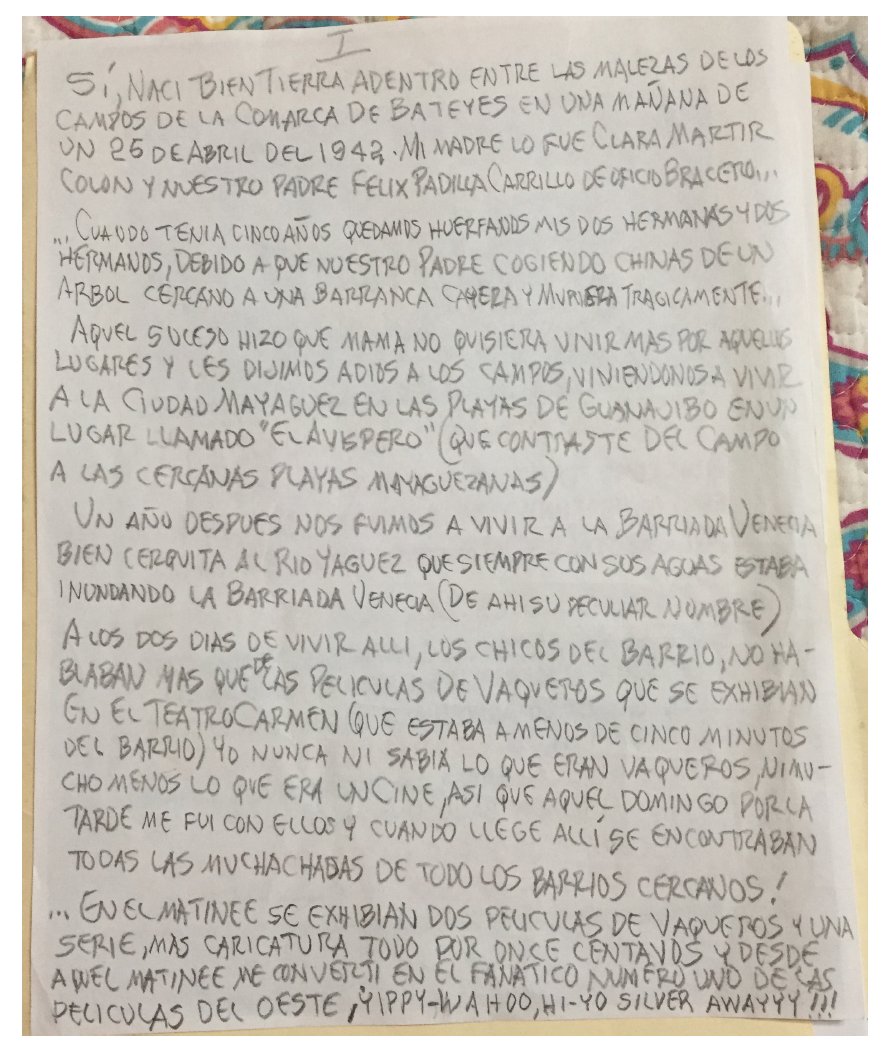 I
SÍ, NACI BIEN TIERRA ADENTRO ENTRE LAS MALEZAS DE LOS
CAMPOS DE LA COMARCA DE BATEYES EN UNA MAÑANA DE
UN 25 DE ABRIL DEL 1942. MI MADRE LO FUE CLARA MARTIR
COLON Y NUESTRO PADRE FELIX PADILLA CARRILLO DE OFICIO BRACERO...
... CUANDO TENIA CINCO AÑOS QUEDAMOS HUERFANOS MIS DOS HERMANAS Y DOS
HERMANOS, DEBIDO A QUE NUESTRO PADRE COGIENDO CHINAS DE UN
ARBOL CERCANO A UNA BARRANCA CAYERA Y MURIERA TRAGICAMENTE...
AQUEL SUCESO HIZO QUE MAMA NO QUISIERA VIVIR MAS POR AQUELLOS
LUGARES Y LES DIJIMOS ADIOS A LOS CAMPOS, VINIENDONOS A VIVIR
A LA CIUDAD MAYAGUEZ EN LAS PLAYAS DE GUANAJIBO EN UN
LUGAR LLAMADO "EL AVISPERO" (QUE CONTRASTE DEL CAMPO
A LAS CERCANAS PLAYAS MAYAGUEZANAS)
UN AÑO DESPUES NOS FUIMOS A VIVIR A LA BARRIADA VENECIA
BIEN CERQUITA AL RIO YAGUEZ QUE SIEMPRE CON SUS AGUAS ESTABA
INUNDANDO LA BARRIADA VENECIA (DE AHI SU PECULIAR NOMBRE)
A LOS DOS DIAS DE VIVIR ALLI, LOS CHICOS DEL BARRIO, NO HA-
BLABAN MAS QUE DE LAS PELICULAS DE VAQUEROS QUE SE EXHIBIAN
EN EL TEATRO CARMEN (QUE ESTABA A MENOS DE CINCO MINUTOS
DEL BARRIO) YO NUNCA NI SABIA LO QUE ERAN VAQUEROS, NI MU-
CHO MENOS LO QUE ERA UN CINE, ASI QUE AQUEL DOMINGO POR LA
TARDE ME FUI CON ELLOS Y CUANDO LLEGE ALLÍ SE ENCONTRABAN
TODAS LAS MUCHACHADAS DE TODO LOS BARRIOS CERCANOS!
... EN EL MATINEE SE EXHIBIAN DOS PELICULAS DE VAQUEROS Y UNA
SERIE, MAS CARICATURA TODO POR ONCE CENTAVOS Y DESDE
AQUEL MATINEE ME CONVERTI EN EL FANATICO NUMERO UNO DE LAS
PELICULAS DEL OESTE, YIPPY-WAHOO, HI-YO SILVER AWAYYY!!!